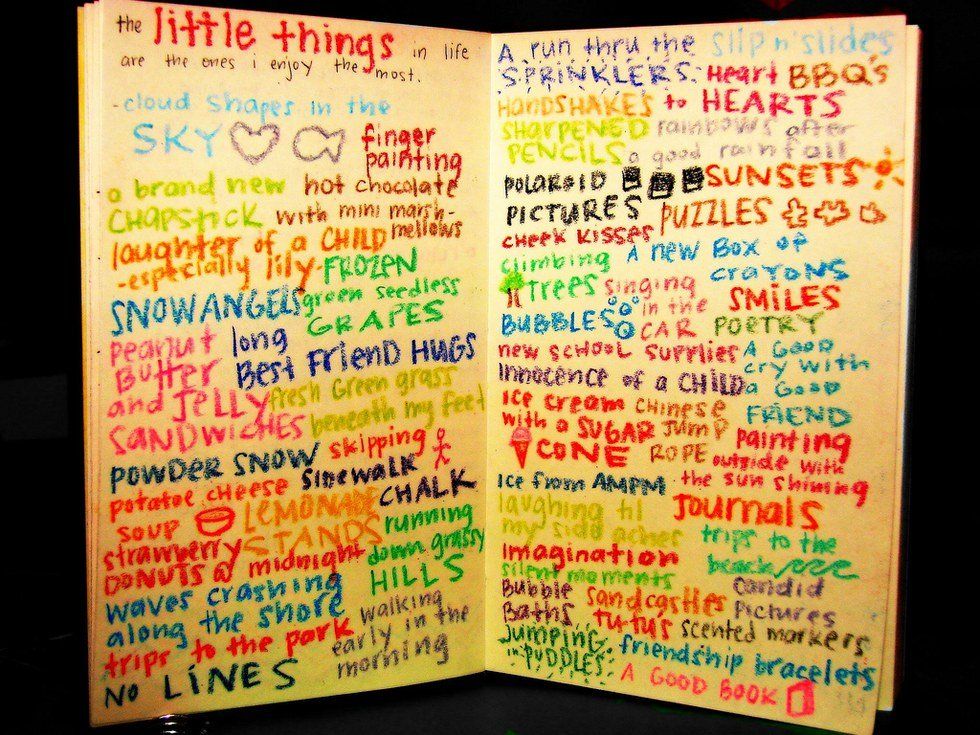 the little things in life
are the ones i enjoy the most.
-cloud shapes in the
SKY
finger
painting
a brand new
CHAPSTICK
hot chocolate
with mini marsh-
mellows
laughter of a CHILD
-especially lily-
FROZEN
green seedless
GRAPES
SNOW ANGELS
peanut
Butter
and JELLY
SANDWICHES
long
Best FrienD HUGS
fresh Green grass
beneath my feet
POWDER SNOW
skipping
potatoe cheese
soup
sidewalk
CHALK
LEMONADE
STANDS
strawberry
DONUTS @ midnight
running
down grassy
HILLS
waves crashing
along the shore
trips to the park
walking
early in the
morning
NO LINES
A run thru the
SPRINKLERS.
slip n' slides
Heart
to HEARTS
BBQ's
HANDSHAKES
SHARPENED
PENCILS
rainbows after
a good rainfall
POLAROID
PICTURES
SUNSETS
PUZZLES
cheek kisses
climbing
trees
A new BOX of
crayons
singing
in the
CAR
SMILES
BUBBLES
POETRY
new school supplies
A GOOD
cry with
a Good
FRIEND
Innocence of a CHILD
ice cream
with a SUGAR
CONE
CHINESE
JUMP
ROPE
painting
outside with
the sun shining
Ice from AMPM
Journals
laughing til
my side aches
trips to the
beach
Imagination
silent moments
Candid
Pictures
Bubble
Baths
sandcastles
tutus
scented markers
Jumping
in PUDDLES
friendship bracelets
A GOOD BOOK